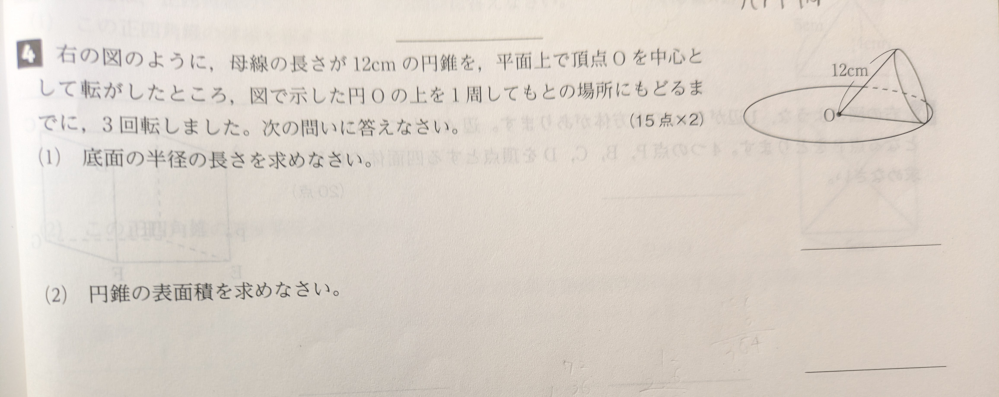 4 右の図のように，母線の長さが12cmの円錐を，平面上で頂点Oを中心と
して転がしたところ，図で示した円Oの上を1周してもとの場所にもどるま
でに，3回転しました。次の問いに答えなさい。 (15点×2)
12cm
O
(1) 底面の半径の長さを求めなさい。
(2) 円錐の表面積を求めなさい。